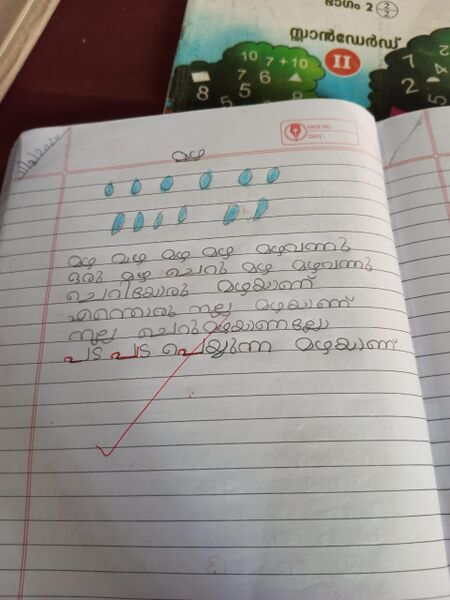 ഭാഗം 2 2/2
സ്റ്റാൻഡേർഡ്
II
10 7+10
7 6
8 5 8
7 2
2 4
5
PAGE NO.
DATE:
മഴ
മഴ മഴ മഴ മഴ മഴവന്നു
ഒരു മഴ ചെറു മഴ മഴവന്നു
ചെറിയോരു മഴയാണ്
എന്തൊരു നല്ല മഴയാണ്
നല്ല ചെറുമഴയാണല്ലോ
പട പട പെയ്യുന്ന മഴയാണ്